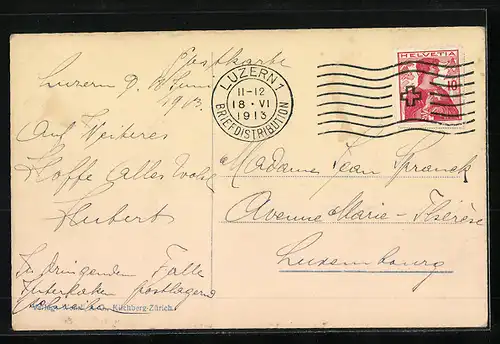 Postkarte
Luzern d. 18 Juni
1913.
Auf Weiteres
Hoffe alles wohl
Hubert
In dringenden Falle
Interlaken postlagernd
schreiben
Kilchberg-Zürich
LUZERN 1
11-12
18·VI
1913
BRIEFDISTRIBUTION
HELVETIA
10
Madame Jean Spranck
Avenue Marie-Thérèse
Luxembourg